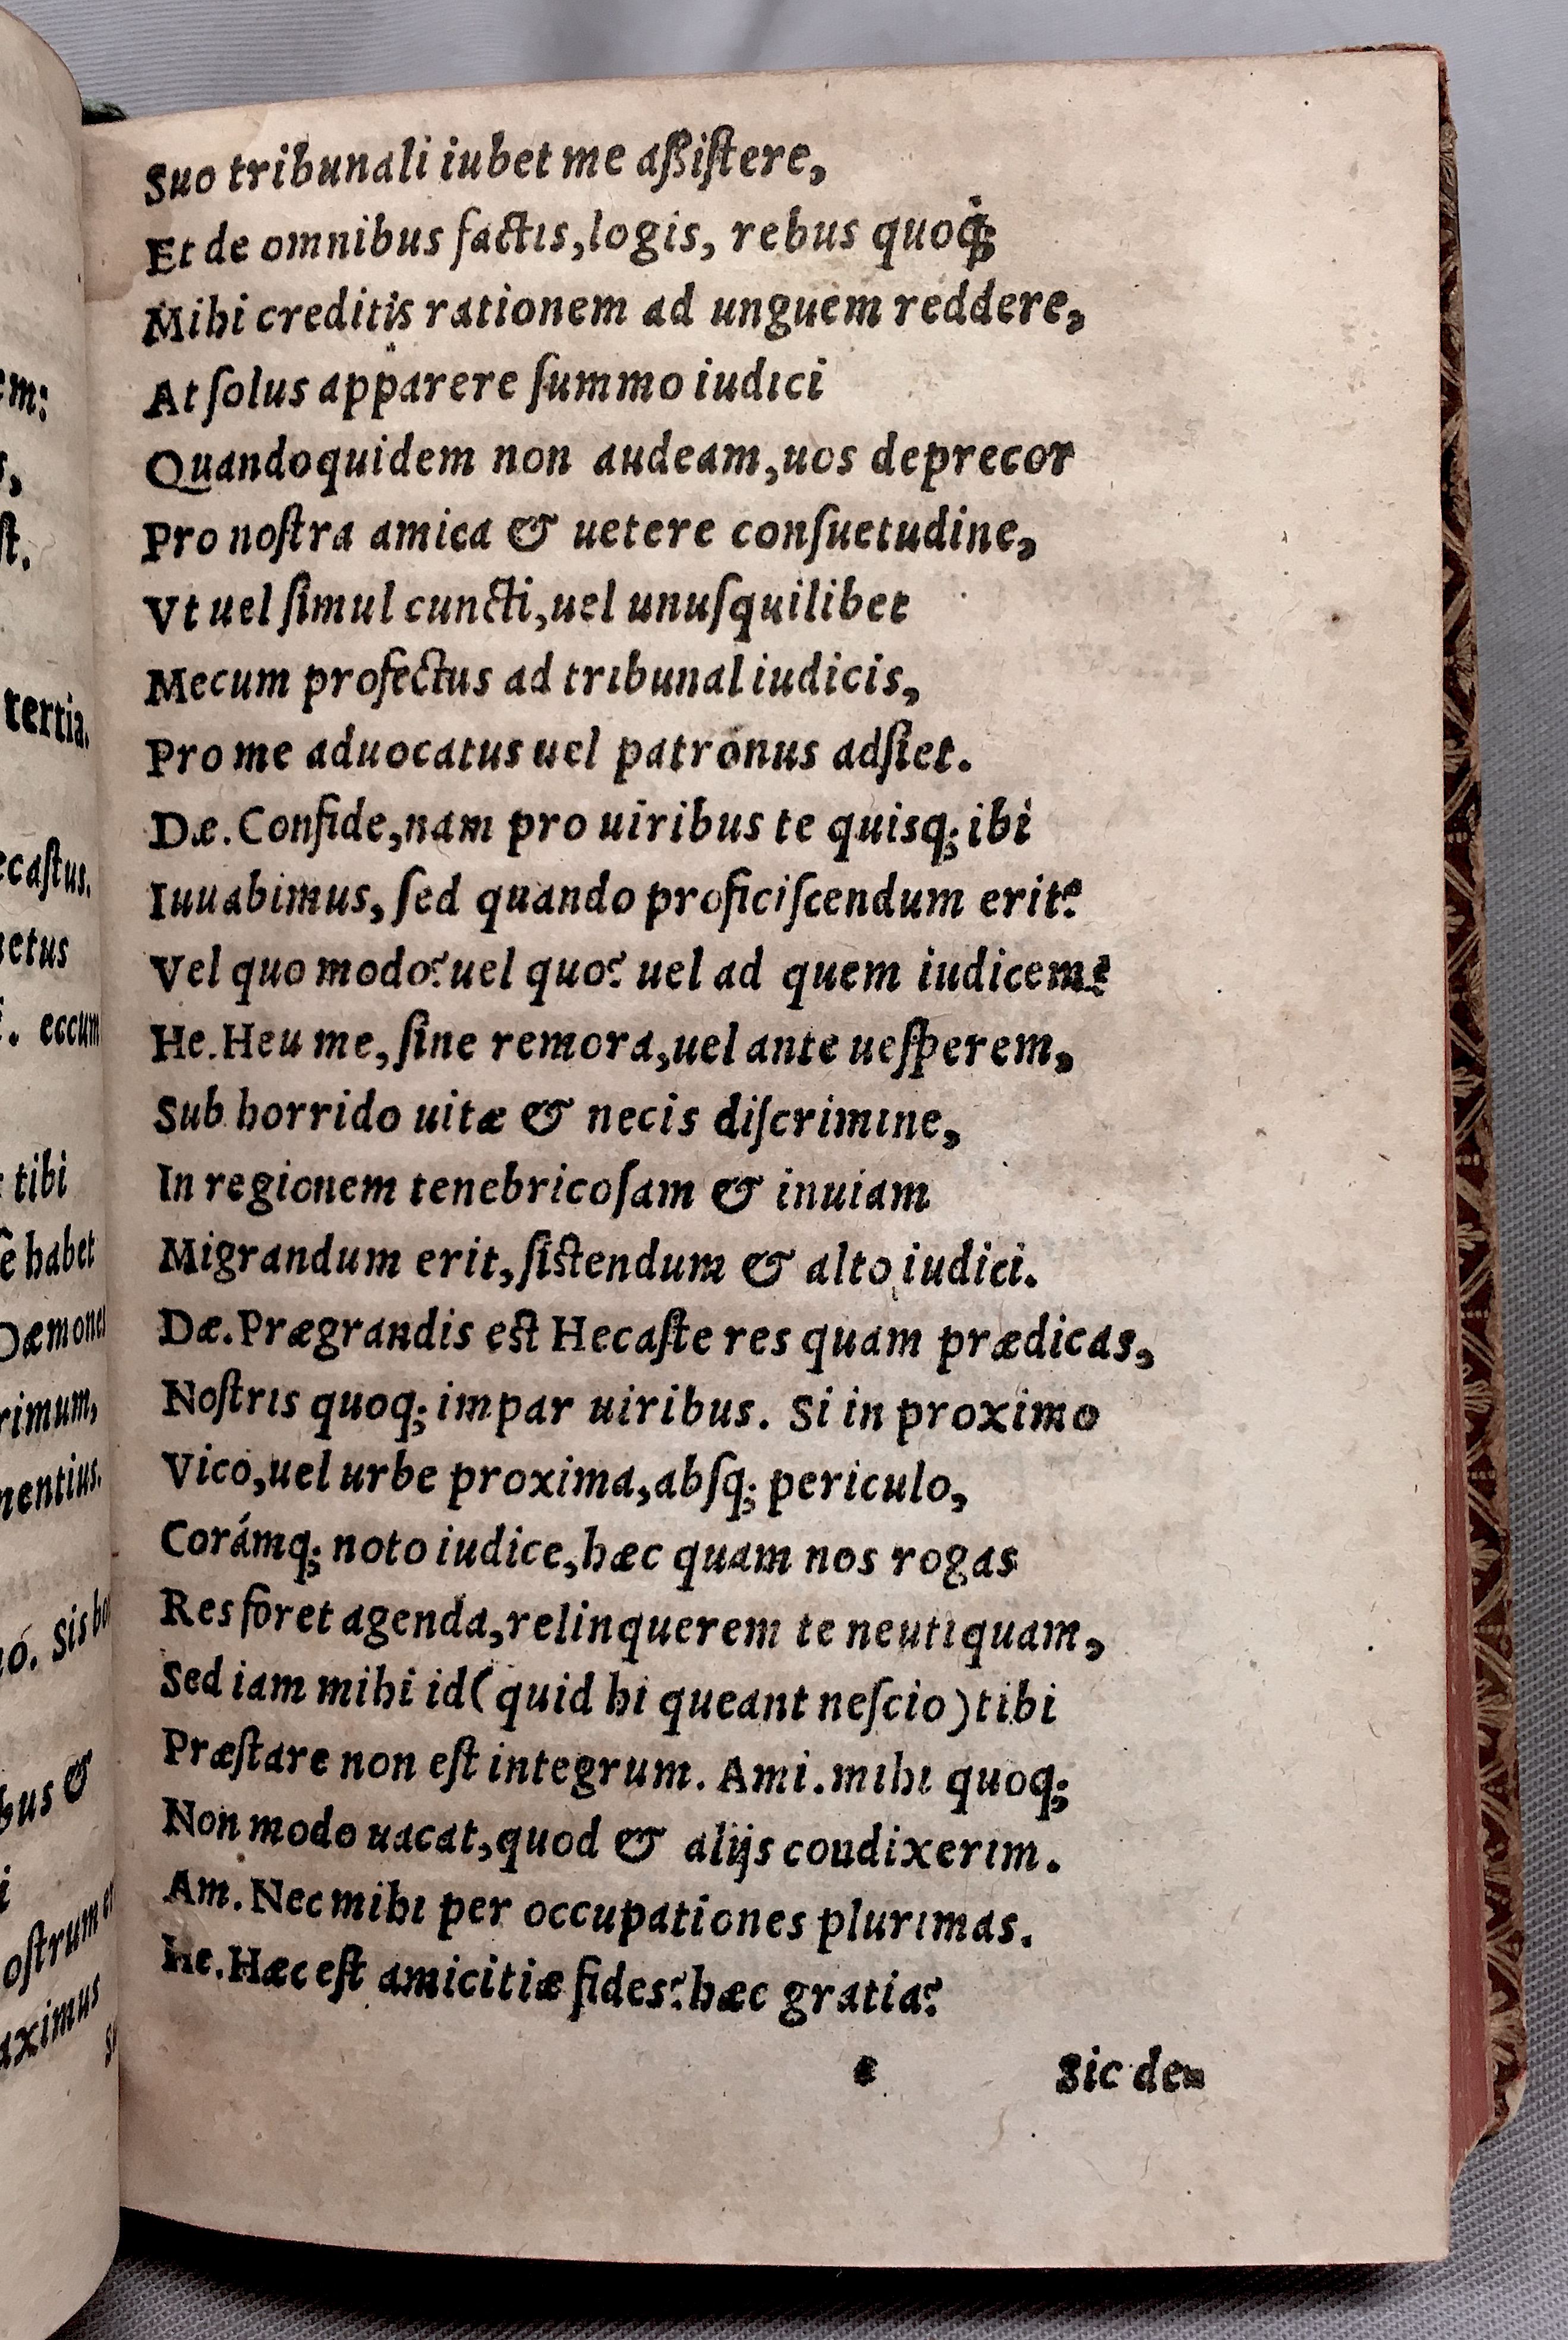 Suo tribunali iubet me aſsiſtere,
Et de omnibus factis, logis, rebus quoq;
Mihi creditis rationem ad unguem reddere,
At ſolus apparere ſummo iudici
Quandoquidem non audeam, uos deprecor
Pro noſtra amica & uetere conſuetudine,
Vt uel ſimul cuncti, uel unuſquilibet
Mecum profectus ad tribunal iudicis,
Pro me aduocatus uel patronus adſiet.
Dæ. Confide, nam pro uiribus te quisq; ibi
Iuuabimus, ſed quando proficiſcendum erit?
Vel quo modo? uel quo? uel ad quem iudicem?
He. Heu me, ſine remora, uel ante ueſperem,
Sub horrido uitæ & necis diſcrimine,
In regionem tenebricoſam & inuiam
Migrandum erit, ſiſtendum & alto iudici.
Dæ. Prægrandis eſt Hecaſte res quam prædicas,
Noſtris quoq; impar uiribus. Si in proximo
Vico, uel urbe proxima, abſq; periculo,
Corámq; noto iudice, hæc quam nos rogas
Res foret agenda, relinquerem te neutiquam,
Sed iam mihi id (quid hi queant neſcio) tibi
Præſtare non eſt integrum. Ami. mihi quoq;
Non modo uacat, quod & alijs condixerim.
Am. Nec mihi per occupationes plurimas.
He. Hæc eſt amicitiæ fides? hæc gratia?
Sic de-
em:
s,
ſt.
tertia.
ecaſtus.
uetus
eccum
tibi
ē habet
Dæmones
rimum,
mentius.
nó. Sis bo
bus &
i
oſtrum
aximus